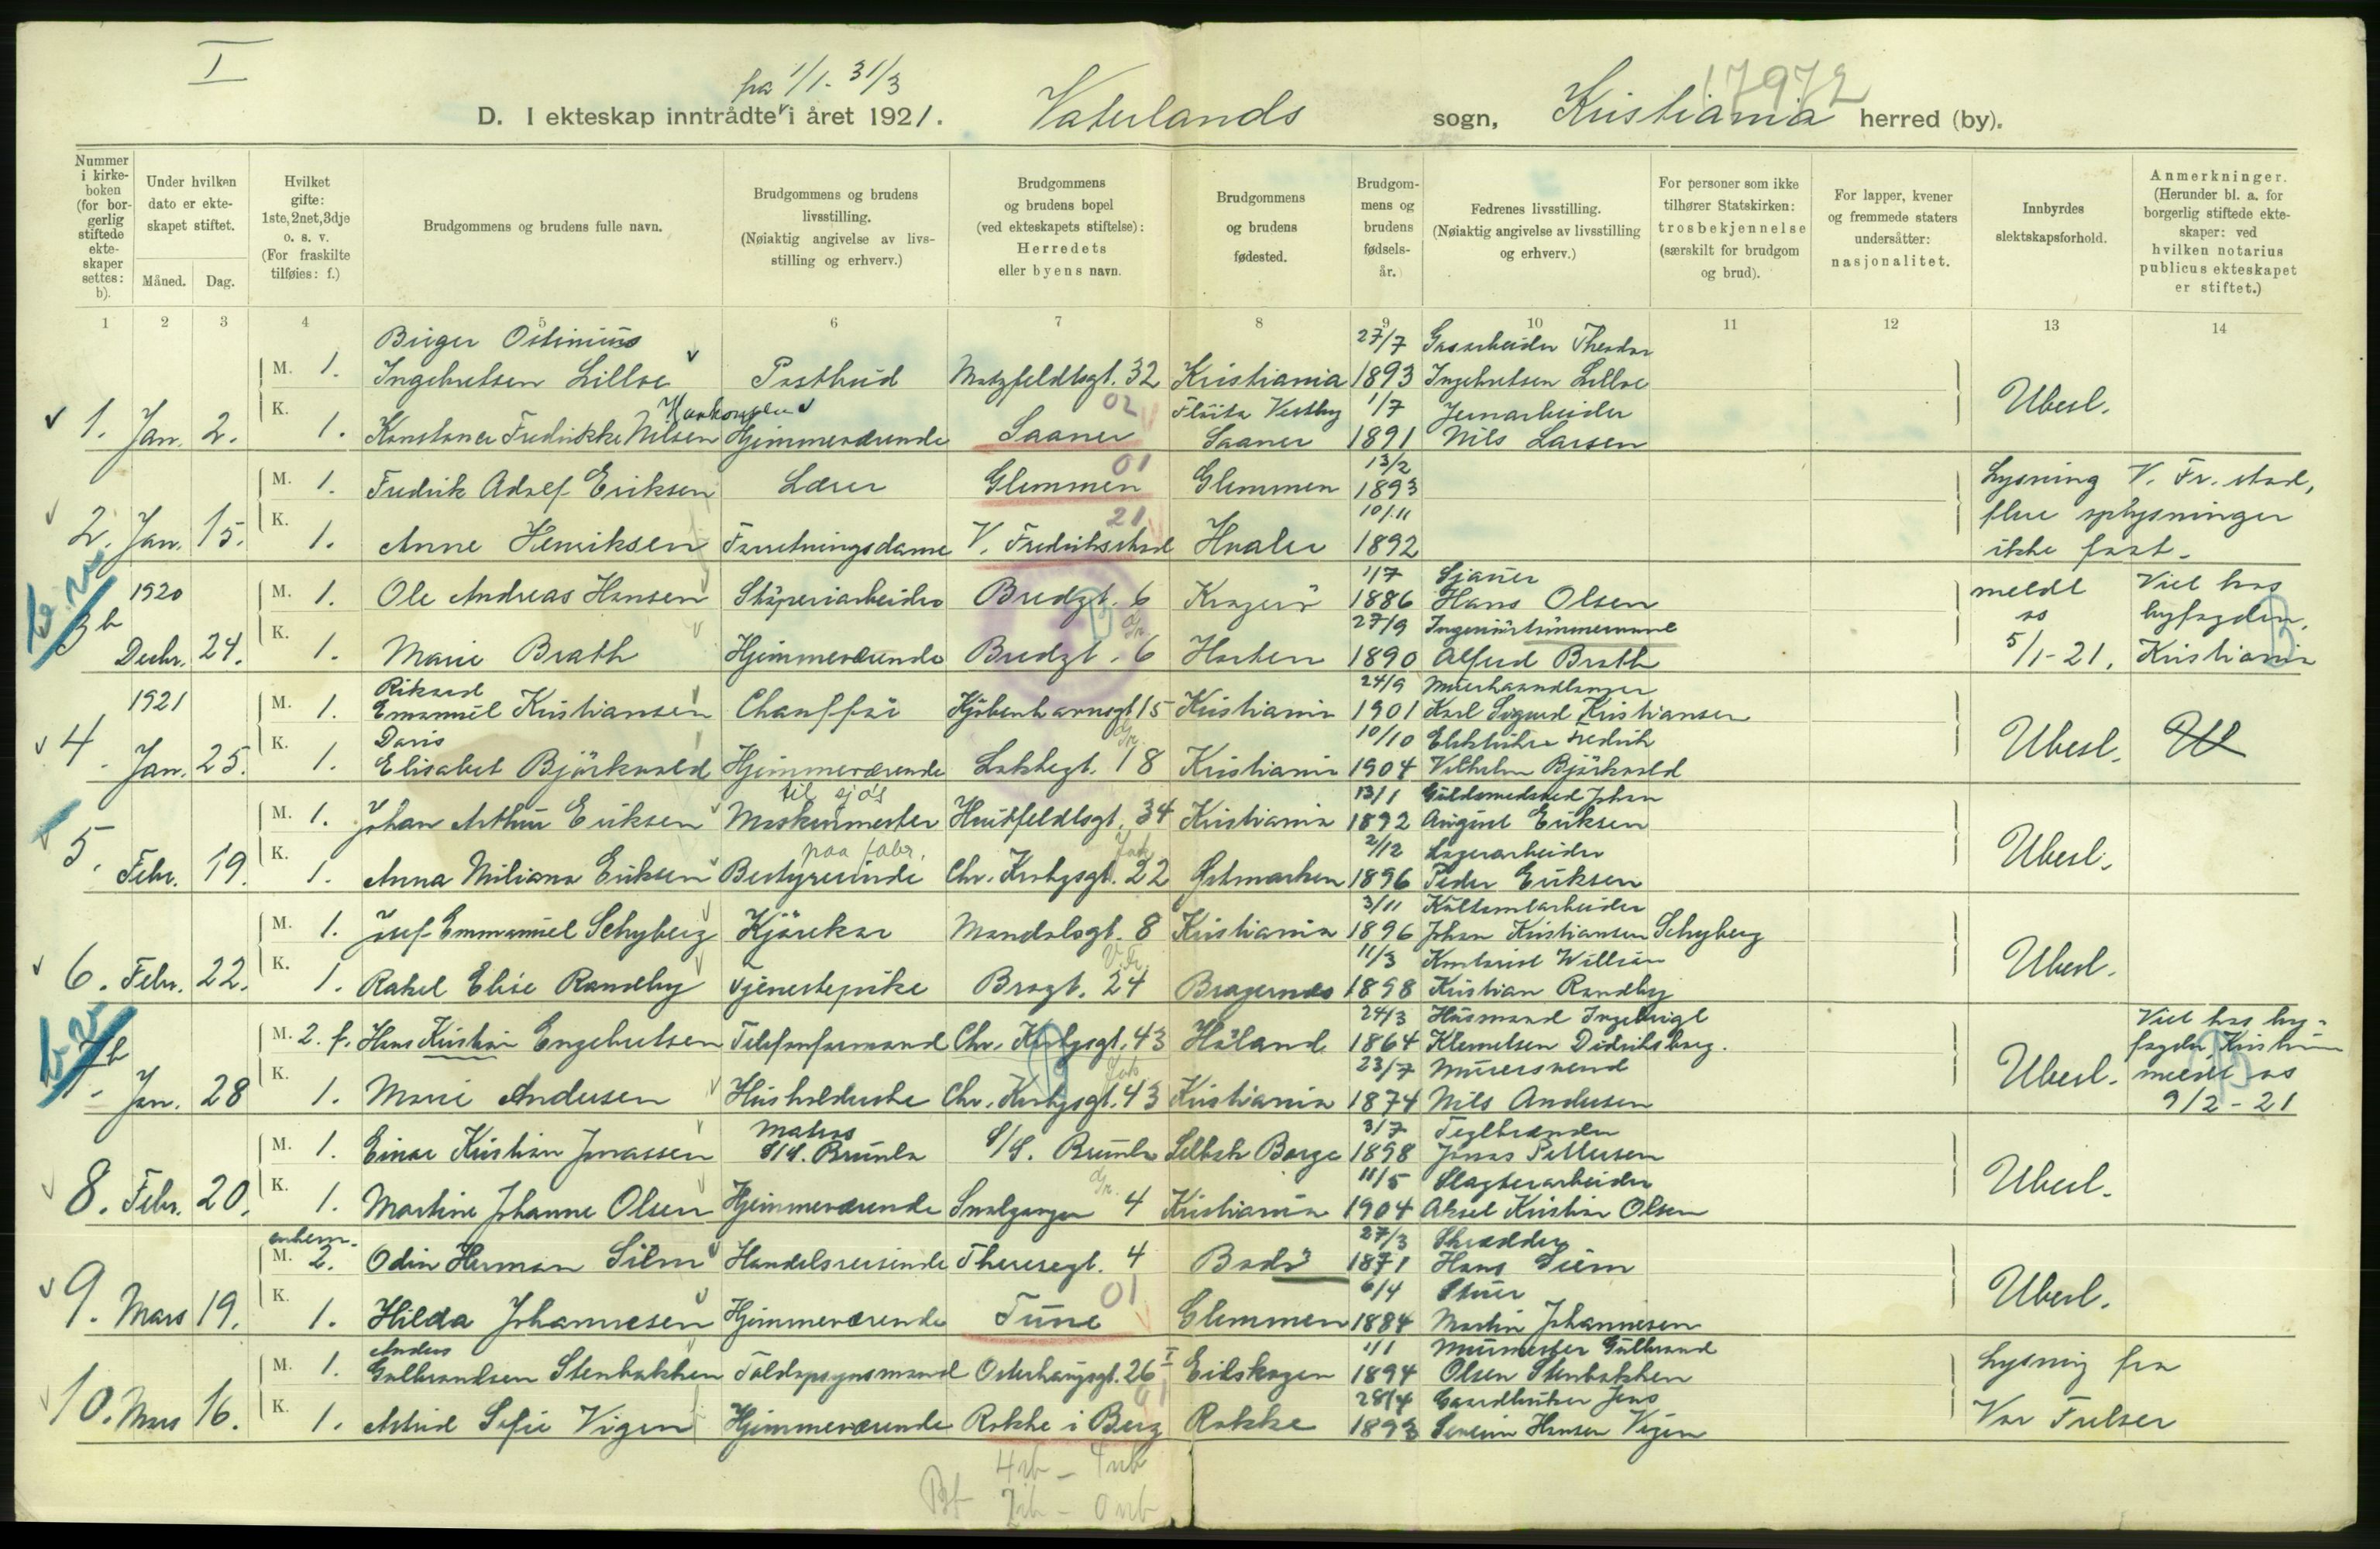 I
fra 1/1 - 31/3
17972
D. I ekteskap inntrådte i året 1921. Vaterlands sogn, Kristiania herred (by).
Nummer i kirkeboken (for borgerlig stiftede ekteskaper settes: b).
Under hvilken dato er ekteskapet stiftet.
Måned. Dag.
Hvilket gifte: 1ste, 2net, 3dje o. s. v. (For fraskilte tilføies: f.)
Brudgommens og brudens fulle navn.
Brudgommens og brudens livsstilling. (Nøiaktig angivelse av livsstilling og erhverv.)
Brudgommens og brudens bopel (ved ekteskapets stiftelse): Herredets eller byens navn.
Brudgommens og brudens fødested.
Brudgommens og brudens fødselsår.
Fedrenes livsstilling. (Nøiaktig angivelse av livsstilling og erhverv.)
For personer som ikke tilhører Statskirken: trosbekjennelse (særskilt for brudgom og brud).
For lapper, kvener og fremmede staters undersåtter: nasjonalitet.
Innbyrdes slektskapsforhold.
Anmerkninger. (Herunder bl. a. for borgerlig stiftede ekteskaper: ved hvilken notarius publicus ekteskapet er stiftet.)
1 2 3 4 5 6 7 8 9 10 11 12 13 14
Birger Ostinius 27/7 Gasarbeider Theodor
M. 1. Ingebretsen Lilloe Postbud Motzfeldtsgt. 32 Kristiania 1893 Ingebretsen Lilloe
K. 02 Vestby 1/7 Jernarbeider Ubesl.
1. Jan. 2. 1. Konstance Fredrikke Nilsen Hjemmeværende Saaner Saaner 1891 Nils Larsen
M. 1. Fredrik Adolf Eriksen Lærer Glemmen 01 Glemmen 13/2 1893 Lysning V. Fr.stad,
K. 21 10/11 flere oplysninger
2. Jan. 15. 1. Anne Henriksen Forretningsdame V. Fredrikstad Hvaler 1892 ikke faat.
1920 M. 1. Ole Andreas Hansen Støperiarbeider Bredgt. 6 Kragerø 1/7 1886 Sjauer Hans Olsen meldt os Viet hos byfogden,
3 b Decbr. 24. K. 1. Marie Brath Hjemmeværende Bredgt. 6 Horten 27/9 1890 Alfred Brath 5/1-21. Kristiania
1921 M. 1. Rikard
Emanuel Kristiansen Chauffør Kjøbenhavnsgt 15 Kristiania 24/9 1901 Murerhaandlanger Karl Sigurd Kristiansen
K. Doris 10/10 Elektriker Fredrik
4. Jan. 25. 1. Elisabet Björkvold Hjemmeværende Lakkegt. 18 Kristiania 1904 Vilhelm Björkvold Ubesl.
til sjøs 13/1 Guldsmedsved Johan
M. 1. Johan Arthur Eriksen Maskinmester Huitfeldtsgt. 34 Kristiania 1892 August Eriksen
K. paa fabr. Jak. 2/12 Lagerarbeider Ubesl.
5. Febr. 19. 1. Anna Miliana Eriksen Bestyrerinde Chr. Krohgsgt. 22 Østmarken 1896 Peder Eriksen
3/11
M. 1. Josef Emmanuel Schyberg Kjørekar Mandalsgt. 8 Kristiania 1896 Johan Kristiansen Schyberg
K. 11/3 Kontorist William
6. Febr. 22. 1. Rakel Elise Randby Tjenestepike Brogt. 24 Bragernes 1898 Kristian Randby Ubesl.
24/3 Husmand Ingebrigt Viet hos by-
M. 2. f. Hans Kristian Engebretsen Telefonformand Chr. Krohgsgt. 43 Høland 1864 Klemetsen Didriksberg. fogden, Kristiania
K. Jak. 23/7 Murersvend Ubesl. meldt os
7 b Jan. 28 1. Marie Andersen Husholderske Chr. Krohgsgt. 43 Kristiania 1874 Nils Andersen 9/2 - 21
Matros 3/7 Teglbrænder
M. 1. Einar Kristian Jonassen S/S. Brumla S/S. Brumla Selbak Borge 1898 Jonas Pettersen
K. Gr. 11/5 Slagteriarbeider
8. Febr. 20. 1. Martine Johanne Olsen Hjemmeværende Smalgangen 4 Kristiania 1904 Aksel Kristian Olsen Ubesl.
enkem. 27/3 Skrædder
M. 2. Odin Herman Siem Handelsreisende Theresegt. 4 Bodø 1871 Hans Siem
K. 01 6/4 Stuer
9. Mars 19. 1. Hilda Johannesen Hjemmeværende Tune Glemmen 1884 Martin Johannesen Ubesl.
Anders 1/1 Murmester Gulbrand
M. 1. Gulbrandsen Stenbakken Toldopsynsmand Osterhausgt. 26 I Eidskogen 1894 Olsen Stenbakken Lysning fra
K. 01 28/4 Gaardbruker Jens
10. Mars 16. 1. Astrid Sofie Vigen Hjemmeværende Rokke i Berg Rokke 1893 Severin Hansen Vigen Vor Frelser